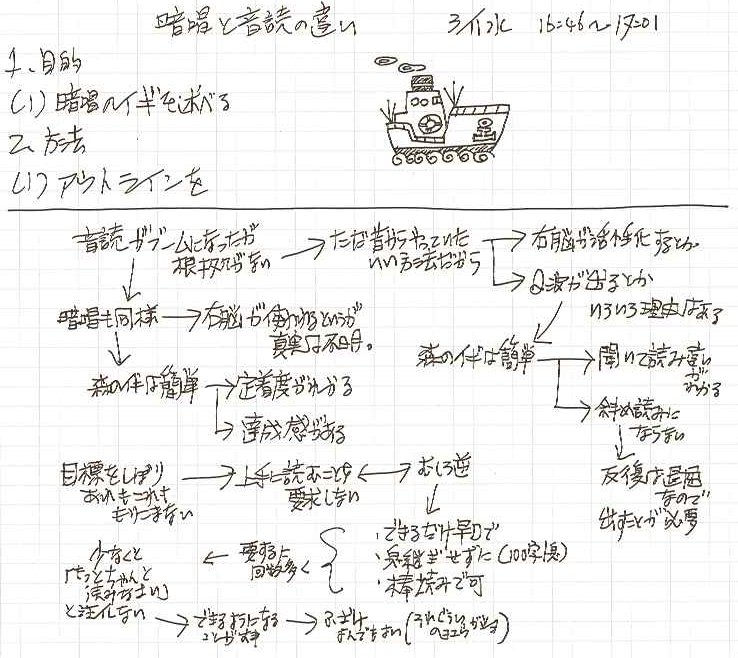 暗唱と音読の違い 3/1水 16:46~17:01
1、目的
(1) 暗唱のイギを述べる
2、方法
(1) アウトラインを
音読がブームになったが
根拠がない
ただ昔からやっていた
いい方法だから
右脳が活性化するとか
α波が出るとか
いろいろ理由はある
暗唱も同様
右脳が使われるというが
真実は不明。
森の伴は簡単
定着度がわかる
達成感がある
森の伴は簡単
聞いて読み違い
が
わかる
斜め読みに
ならない
反復は
なので
出すことが必要
目標をしぼり
あれもこれも
もりこまない
上手に読むことは
要求しない
むしろ逆
・できるだけ早口で
・息継ぎせずに (100字)
・棒読みで可
要するに
回数多く
少なくと
「もっとちゃんと
読みなさい」
と注イしない
できるようになる
ことが
ふざけ
なんでもない